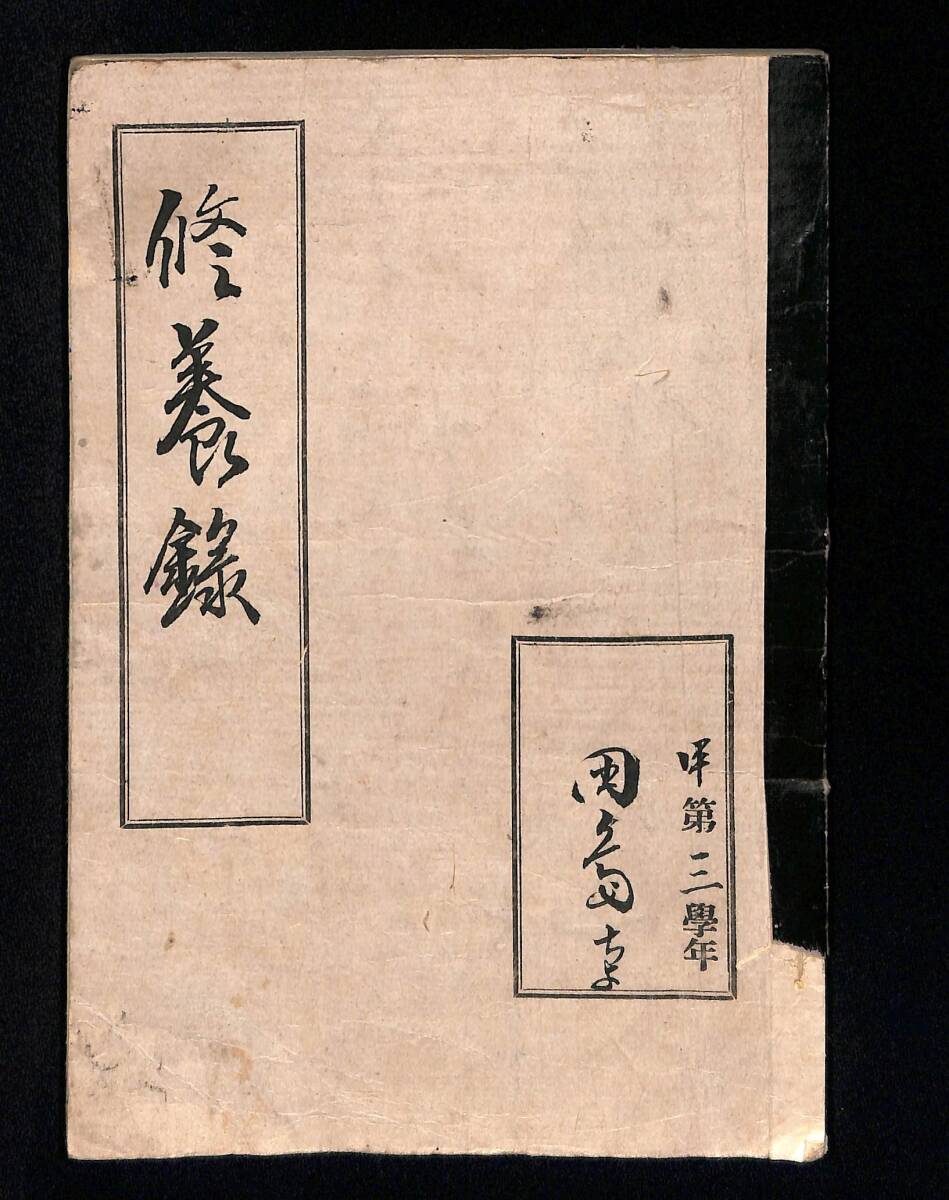 甲第三學年
ちよ
修養錄